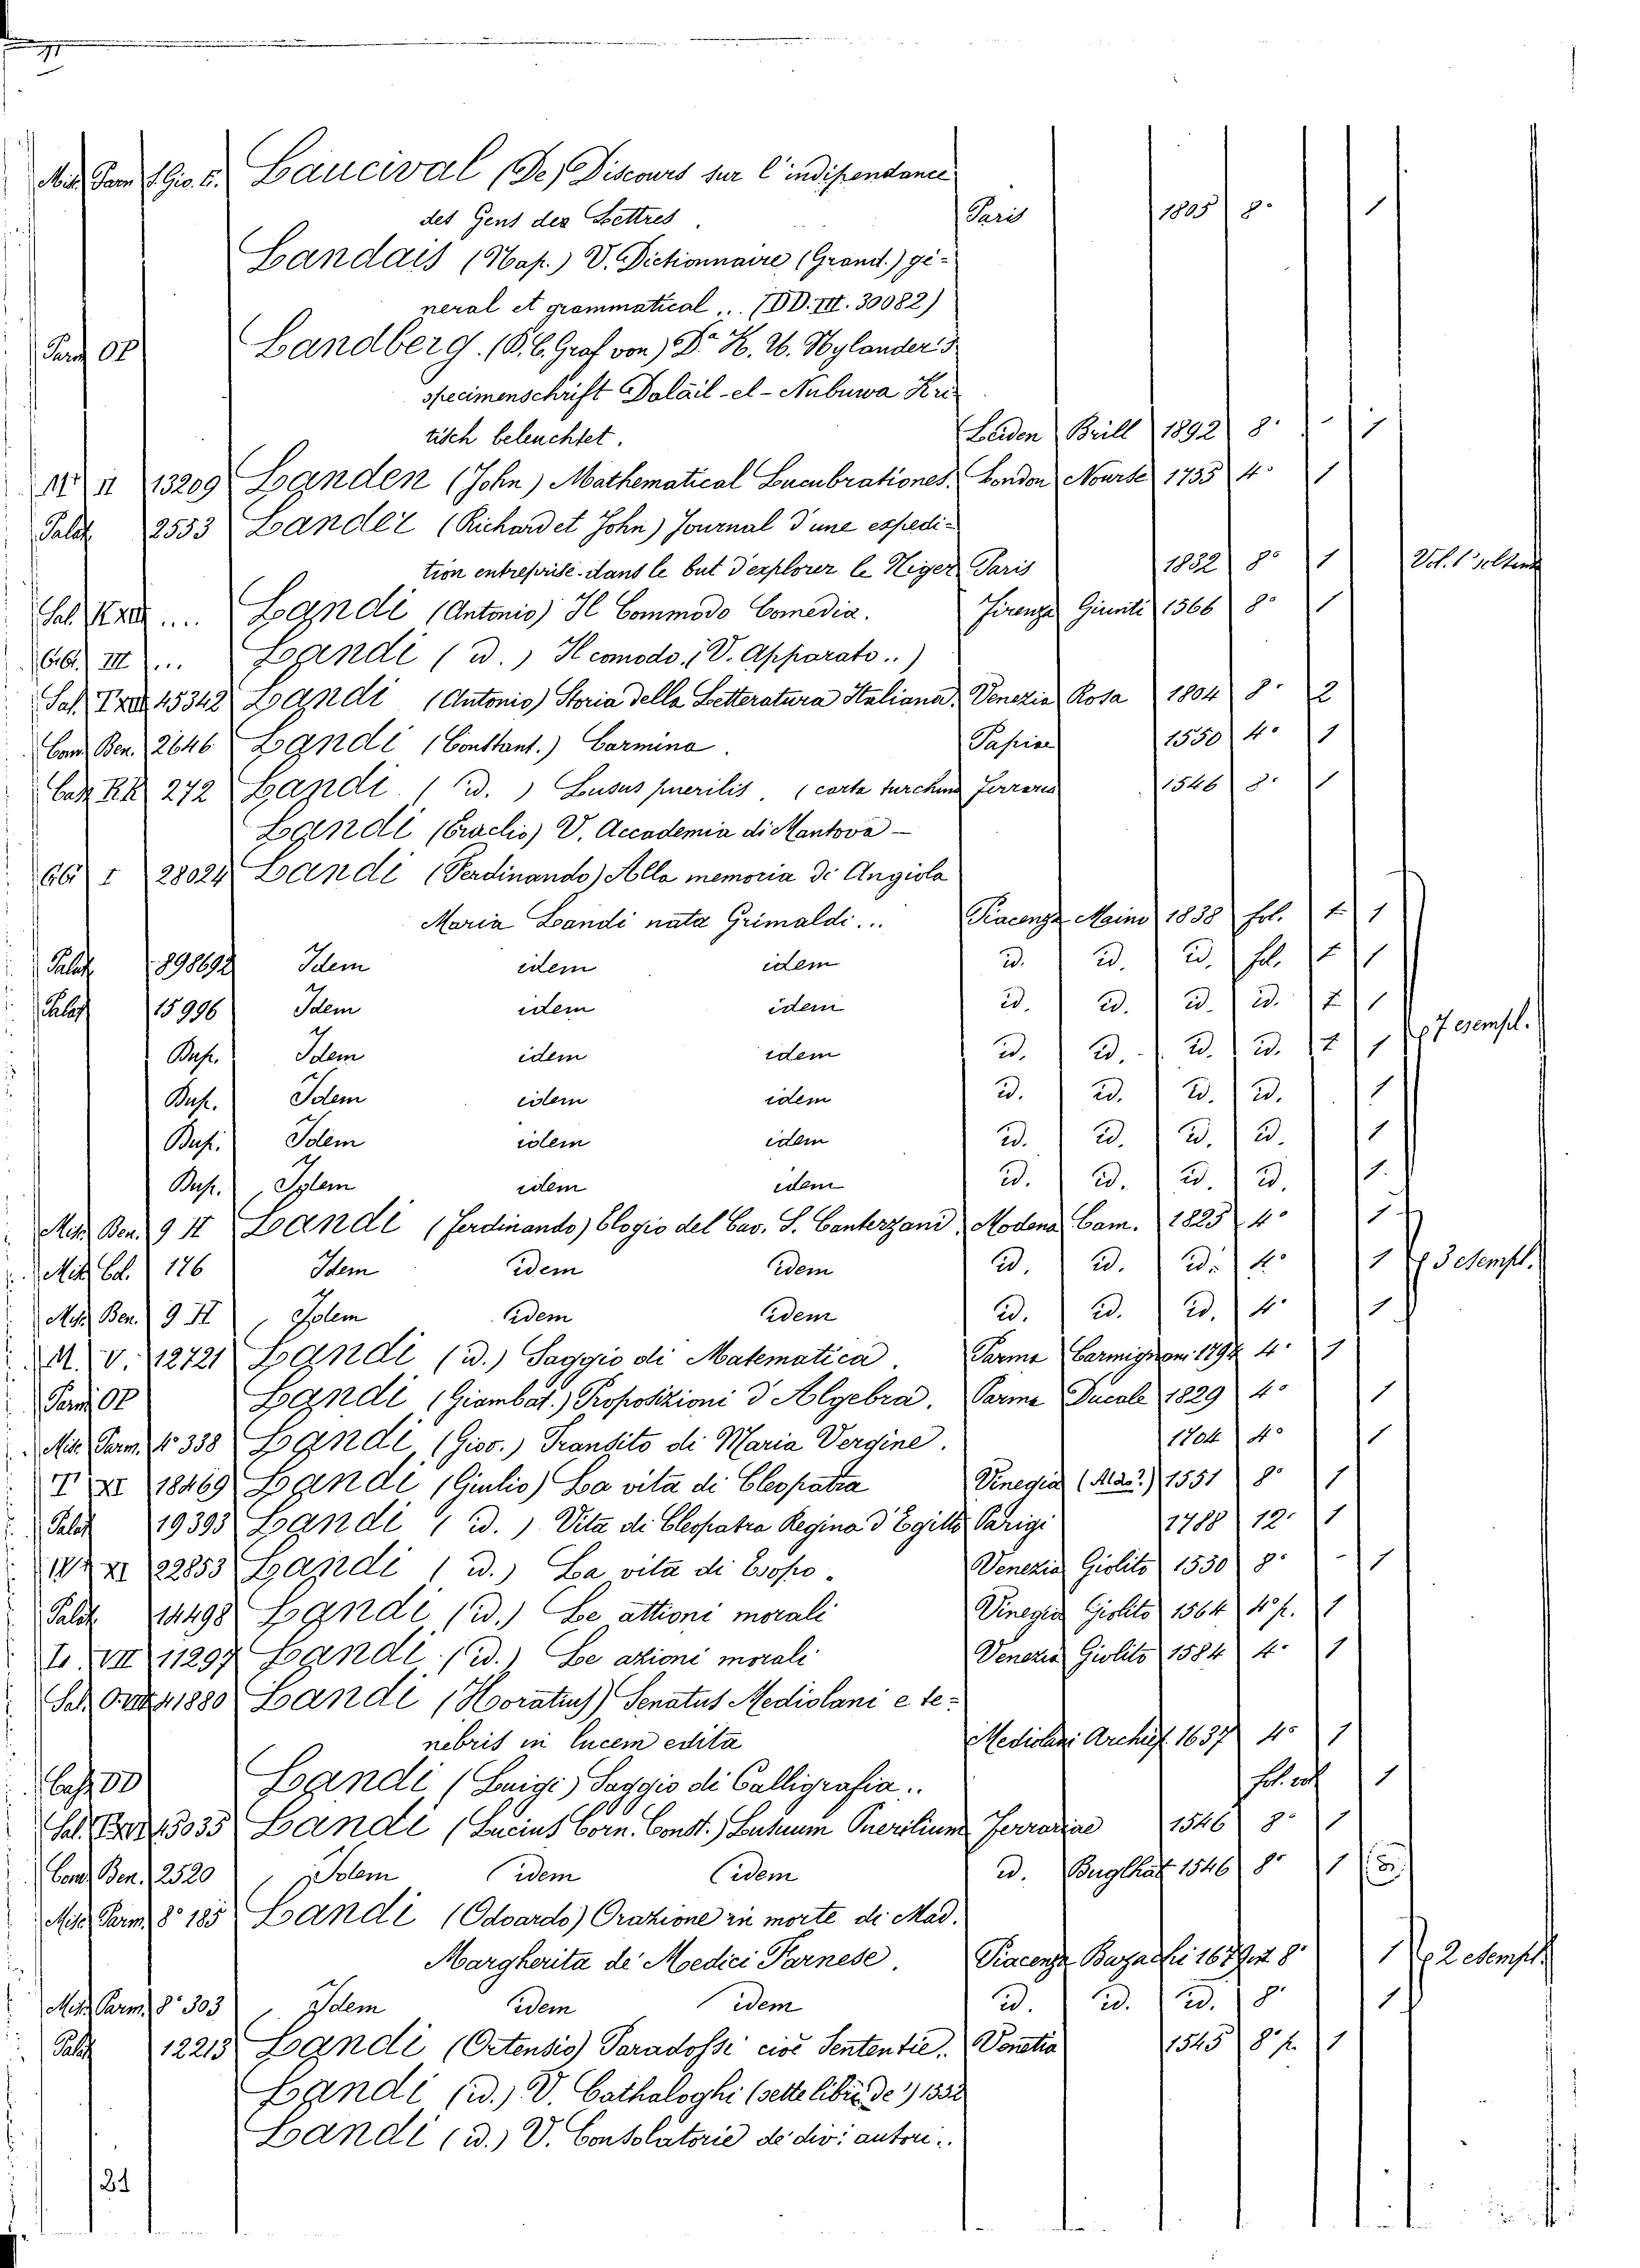 Laucival (De) Discours sur l'indipendance
des Gens des Lettres. Paris 1805 8° 1
Landais (Nap.) V. Dictionnaire (Grand.) gé-
neral et grammatical... (DD. III. 30082)
Parm OP Landberg. (B. C. Graf von) Dr H. U. Hylander's
specimenschrift Dalâil-el-Nubuwa Kri-
tisch beleuchtet. Leiden Brill 1892 8° 1
II 13209 Landen (John) Mathematical Lucubrationes. London Nourse 1755 4° 1
Palat. 2533 Lander (Richard et John) Journal d'une espedi-
tion entreprise dans le but d'explorer le Niger Paris 1832 8° 1
Sal. Landi (Antonio) Il Commodo Comedia. Firenze Giunti 1566 8° 1
III ... Landi (id.) Il comodo. (V. Apparato..)
Sal. 45342 Landi (Antonio) Storia della Letteratura Italiana. Venezia Rosa 1804 8° 2
Cam. Ben. 2646 Landi (Constant.) Carmina. Papiae 1550 4° 1
KK 272 Landi (id.) Lusus puerilis. (carta turchina Ferrarea 1546 8° 1
Landi (Eraclio) V. Accademia di Mantova -
I 28024 Landi (Ferdinando) Alla memoria di Angiola
Maria Landi nata Grimaldi... Piacenza Maino 1838 fol. 1
Palat 898692 Idem idem idem id. id. id. fol. 1
Palat 15996 Idem idem idem id. id. id. id. 1
Bup. Idem idem idem id. id. id. id. 1 7 esempl.
Bup. Idem idem idem id. id. id. id. 1
Bup. Idem idem idem id. id. id. id. 1
Bup. Idem idem idem id. id. id. id. 1
Misc. Ben. 9 II Landi (Ferdinando) Elogio del Cav. S. Canterzani Modena Cam. 1825 4° 1
Misc. Ed. 176 Idem idem idem id. id. id. 4° 1 3 esempl.
Misc. Ben. 9 II Idem idem idem id. id. id. 4° 1
M. V. 12721 Landi (id.) Saggio di Matematica. Parma Carmignani 1794 4° 1
Parm OP Landi (Giambat.) Proposizioni d'Algebra. Parma Ducale 1829 4° 1
Misc. Parm. 4° 338 Landi (Giov.) Transito di Maria Vergine. 1704 4° 1
T XI 18469 Landi (Giulio) La vita di Cleopatra Vinegia (Aldo?) 1551 8° 1
Palat 19393 Landi (id.) Vita di Cleopatra Regina d'Egitto Parigi 1788 12° 1
XI 22853 Landi (id.) La vita di Esopo. Venezia Giolito 1550 8° 1
Palat 14498 Landi (id.) Le attioni morali Vinegia Giolito 1564 4° p. 1
VII 11297 Landi (id.) Le azioni morali Venezia Giolito 1584 4° 1
Sal. 41880 Landi (Horatius) Senatus Mediolani e te-
nebris in lucem edita Mediolani Archiep. 1637 4° 1
DD Landi (Luigi) Saggio di Calligrafia.. fol. obl 1
Sal. 45035 Landi (Lucius Corn. Const.) Lusuum Puerilium Ferrariae 1546 8° 1
Cam. Ben. 2520 Idem idem idem id. Buglhat 1546 8° 1
Misc. Parm. 8° 185 Landi (Odoardo) Orazione in morte di Mad.
Margherita de Medici Farnese. Piacenza Bazachi 1679 in 8° 1 2 esempl.
Misc. Parm. 8° 303 Idem idem idem id. id. id. 8° 1
Palat 12213 Landi (Ortensio) Paradossi cioè Sententie. Venetia 1545 8° p. 1
Landi (id.) V. Cathaloghi (sette libri de') 1552
Landi (id.) V. Consolatorie de div: autori..
21